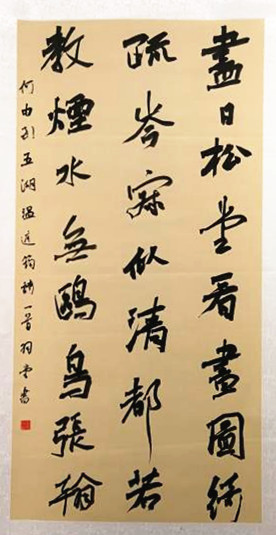 盡日松堂看畫圖綺
疏岑寂似清都若
教煙水無鷗鳥張翰
何由到五湖溫庭筠詩一首書